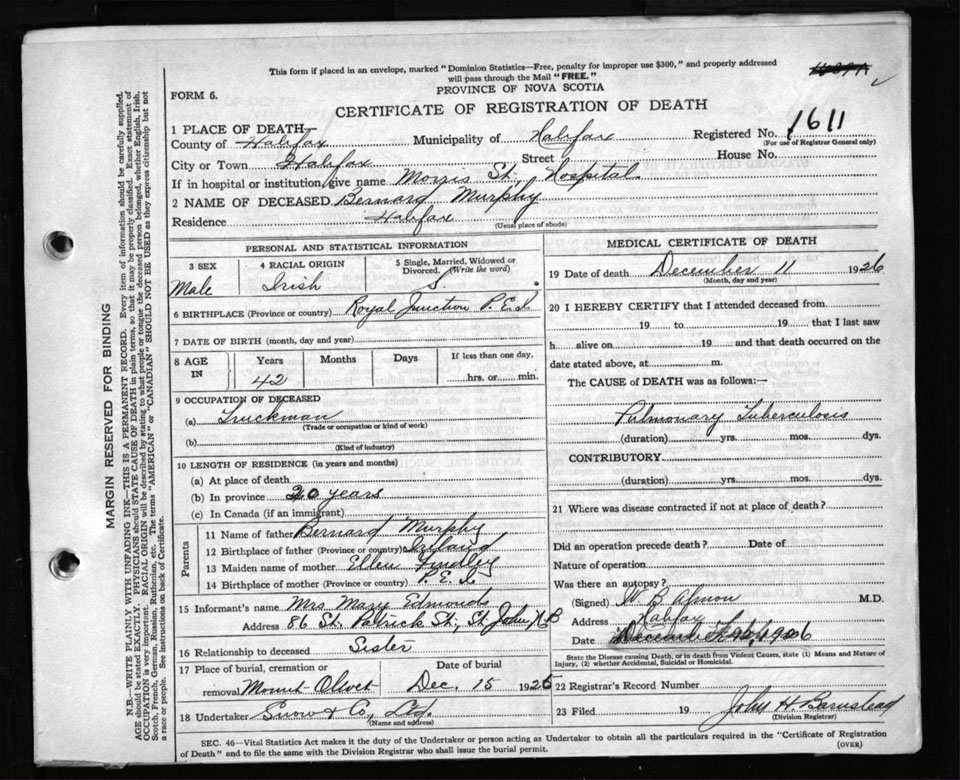 This form if placed in an envelope, marked "Dominion Statistics—Free, penalty for improper use $300," and properly addressed
will pass through the Mail "FREE."
PROVINCE OF NOVA SCOTIA
FORM 6.
CERTIFICATE OF REGISTRATION OF DEATH
1 PLACE OF DEATH—
County of Halifax Municipality of Halifax Registered No. 1611
(For use of Registrar General only)
City or Town Halifax Street House No.
If in hospital or institution, give name Morris St. Hospital
2 NAME OF DECEASED Bernard Murphy
Residence Halifax
(Usual place of abode)
PERSONAL AND STATISTICAL INFORMATION
3 SEX
Male
4 RACIAL ORIGIN
Irish
5 Single, Married, Widowed or
Divorced. (Write the word)
S.
6 BIRTHPLACE (Province or country) Royal Junction P.E.I.
7 DATE OF BIRTH (month, day and year)
8 AGE IN
Years Months Days If less than one day,
42 hrs. or min.
9 OCCUPATION OF DECEASED
(a) Truckman
(Trade or occupation or kind of work)
(b)
(Kind of industry)
10 LENGTH OF RESIDENCE (in years and months)
(a) At place of death
(b) In province 20 years
(c) In Canada (if an immigrant)
Parents
11 Name of father Bernard Murphy
12 Birthplace of father (Province or country) Ireland
13 Maiden name of mother Ellen Findley
14 Birthplace of mother (Province or country) P.E.I.
15 Informant's name Mrs Mary Edmonds
Address 86 St. Patrick St., St John N.B
16 Relationship to deceased Sister
17 Place of burial, cremation or
removal Mount Olivet
Date of burial
Dec. 15 1926
18 Undertaker Snow & Co., Ltd.
(Name and address)
MEDICAL CERTIFICATE OF DEATH
19 Date of death December 11 1926
(Month, day and year)
20 I HEREBY CERTIFY that I attended deceased from
19 to 19 that I last saw
h alive on 19 and that death occurred on the
date stated above, at m.
The CAUSE of DEATH was as follows:—
Pulmonary Tuberculosis
(duration) yrs. mos. dys.
CONTRIBUTORY
(duration) yrs. mos. dys.
21 Where was disease contracted if not at place of death?
Did an operation precede death? Date of
Nature of operation
Was there an autopsy?
(Signed) W B Almon M.D.
Address Halifax
Date December 1926
State the Disease causing Death, or in death from Violent Causes, state (1) Means and Nature of
Injury, (2) whether Accidental, Suicidal or Homicidal.
22 Registrar's Record Number
23 Filed 19 John H. Barnstead
(Division Registrar)
SEC. 46—Vital Statistics Act makes it the duty of the Undertaker or person acting as Undertaker to obtain all the particulars required in the "Certificate of Registration
of Death" and to file the same with the Division Registrar who shall issue the burial permit.
(OVER)
MARGIN RESERVED FOR BINDING
N.B.—WRITE PLAINLY WITH UNFADING INK—THIS IS A PERMANENT RECORD. Every item of information should be carefully supplied.
AGE should be stated EXACTLY. PHYSICIANS should STATE CAUSE OF DEATH in plain terms, so that it may be properly classified. Exact statement of
OCCUPATION is very important. RACIAL ORIGIN will be described by stating to what people or tongue the deceased person belonged, whether English, Irish,
Scotch, French, German, Russian, Ruthenian, etc. The terms "AMERICAN" or "CANADIAN" SHOULD NOT BE USED as they express citizenship but not
a race or people. See instructions on back of Certificate.